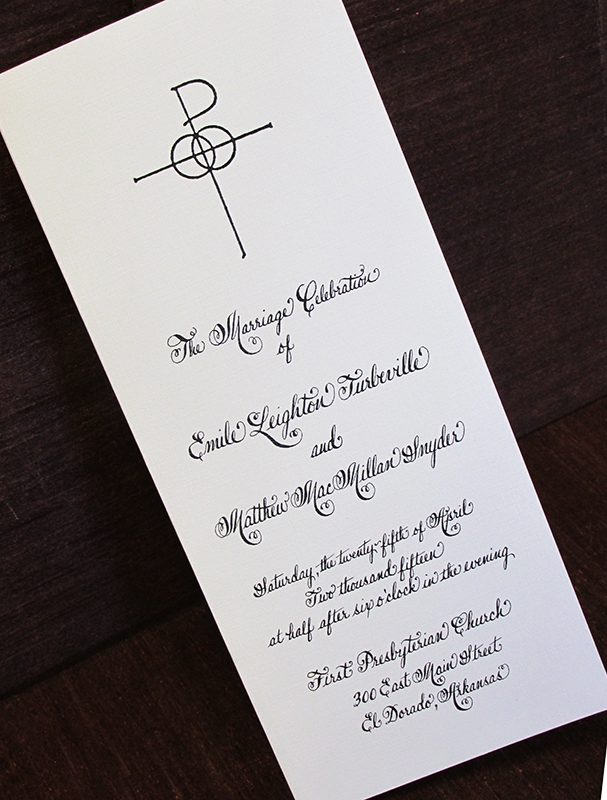 The Marriage Celebration
of
Emile Leighton Turbeville
and
Matthew MacMillan Snyder
Saturday, the twenty-fifth of April
Two thousand fifteen
at half after six o'clock in the evening
First Presbyterian Church
300 East Main Street
El Dorado, Arkansas